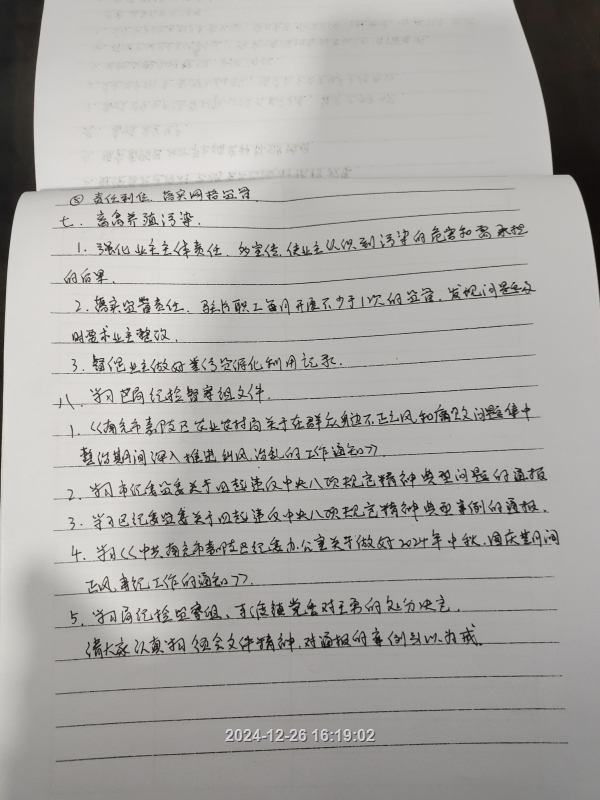 ② 责任到位、落实网格监管
七、畜禽养殖污染.
1. 强化业主主体责任,多宣传,使业主认识到污染的危害和需承担
的后果.
2. 落实监管责任. 驻片职工每月开展不少于1次的监管,发现问题及
时要求业主整改.
3. 督促业主做好粪污资源化利用记录.
八、学习区局纪检督察组文件.
1.《南充市嘉陵区农业农村局关于在群众身边不正之风和腐败问题集中
整治期间深入推进纠风治乱的工作通知》.
2. 学习市纪委监委关于四起违反中央八项规定精神典型问题的通报
3. 学习区纪委监委关于四起违反中央八项规定精神典型事例的通报.
4. 学习《中共南充市嘉陵区纪委办公室关于做好2024年中秋、国庆期间
正风肃纪工作的通知》.
5. 学习局纪检监察组、镇党委对的处分决定.
请大家认真学习领会文件精神,对通报的事例引以为戒.
2024-12-26 16:19:02